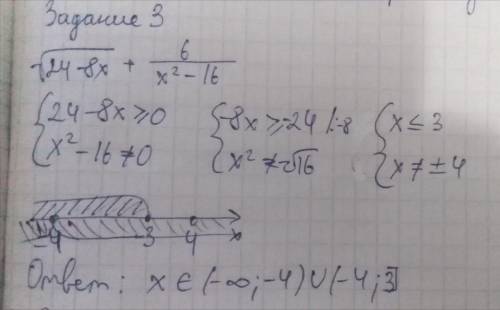 Задание 3
√24-8x + 6/(x² - 16)
{24-8x ≥ 0 {-8x ≥ -24 |:-8 {x ≤ 3
{x² - 16 ≠ 0 {x² ≠ √16 {x ≠ ± 4
-4 3 4 x
Ответ: x ∈ (-∞; -4) ∪ (-4; 3]